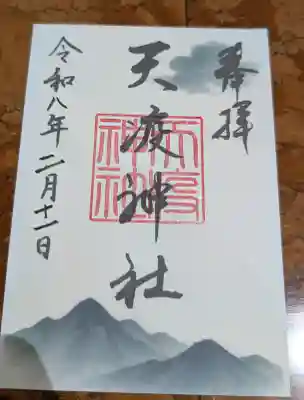 奉拝
天渡神社
天渡神社
令和八年二月十一日